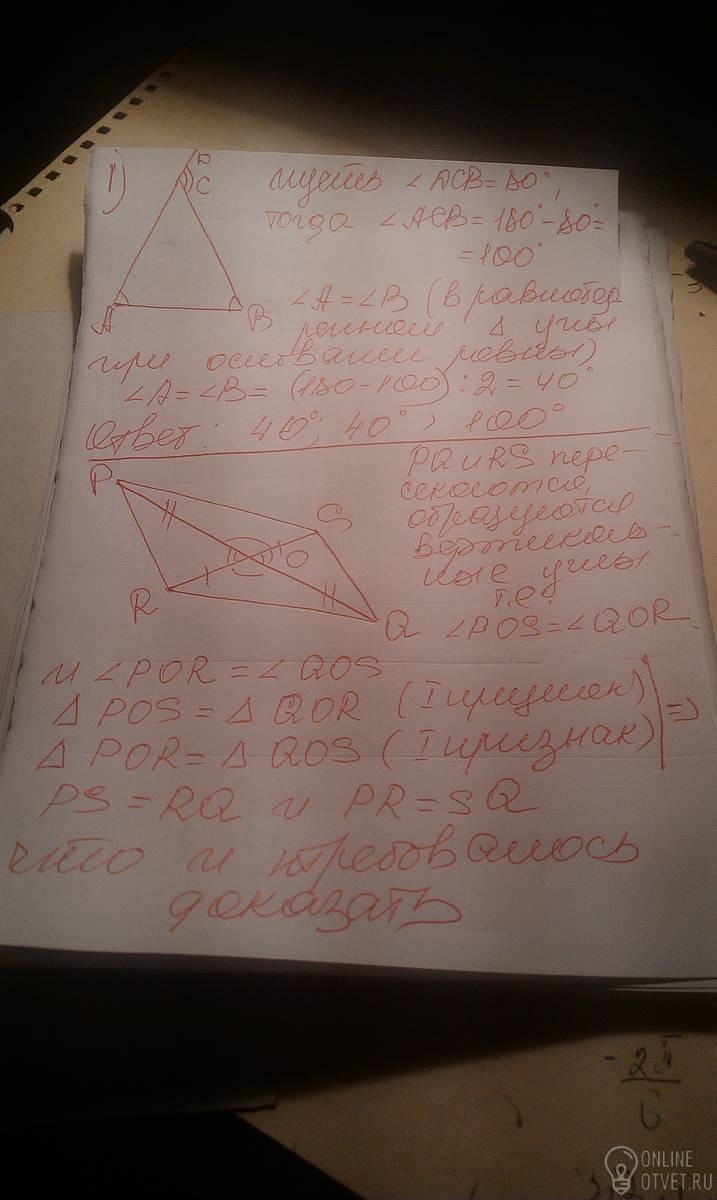 1)
D
C
A
B
пусть ∠DCB = 80°,
тогда ∠ACB = 180° - 80° =
= 100°
∠A = ∠B (в равнобед
ренном Δ углы
при основании равны)
∠A = ∠B = (180 - 100) : 2 = 40°
Ответ: 40°; 40°, 100°
P
S
O
R
Q
PQ и RS пере-
секаются,
образуются
вертикаль-
ные углы
т.е.
∠POS = ∠QOR.
и ∠POR = ∠QOS
Δ POS = Δ QOR (I признак)
Δ POR = Δ QOS (I признак) ⇒
PS = RQ и PR = SQ
что и требовалось
доказать
- 2π
6
ONLINE
OTVET.RU